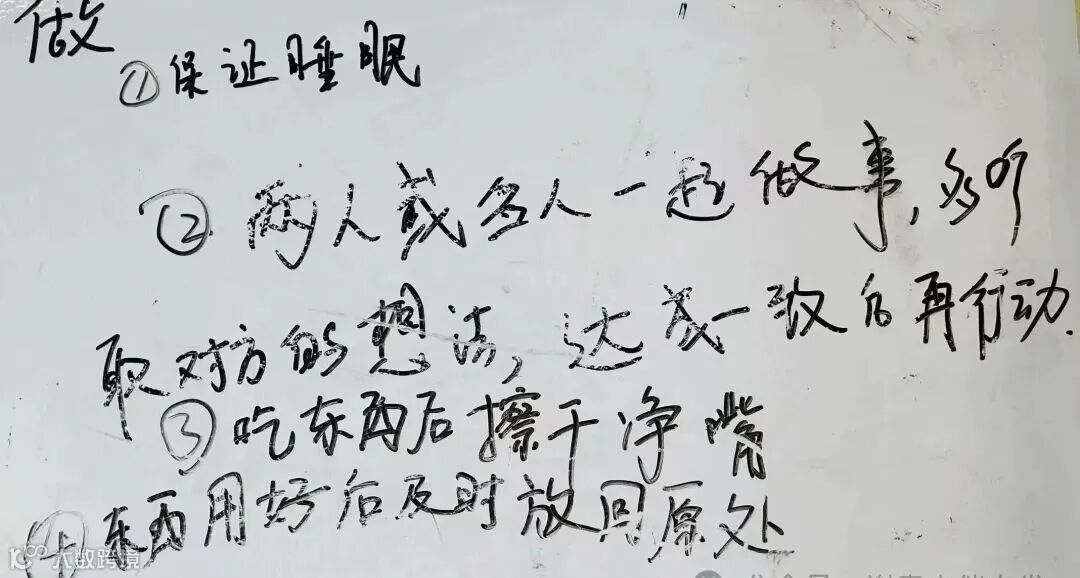 做
①保证睡眠
②两人或多人一起做事,多听
取对方的想法,达成一致后再行动.
③吃东西后擦干净嘴
④东西用好后及时放回原处
大数跨境